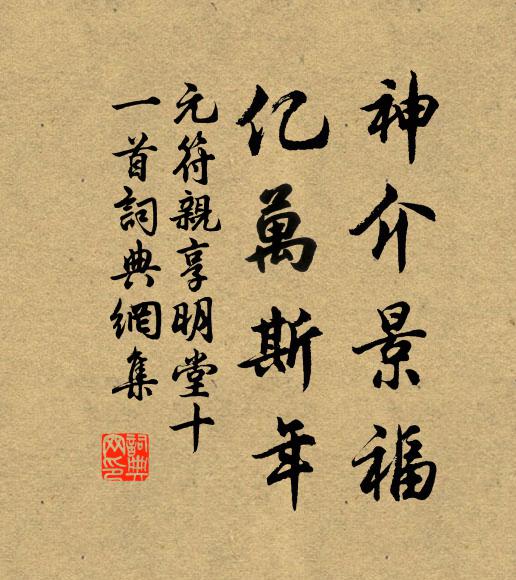 神介景福
亿萬斯年
元符親享明堂十
一首詞典網集
詞典網印